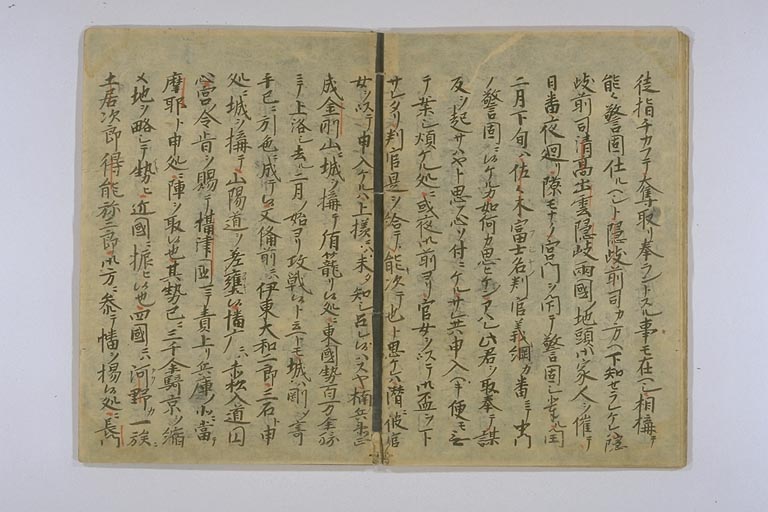 徒指チカフテ奪取リ奉ラントスル事モ在ヘシ相構テ
能々警固仕ルヘシト隠岐前司カ方ヘ下知セラレケレハ隠
岐前司清高出雲隠岐兩國ノ地頭御家人ヲ催テ
日番夜廻リ隙モナク宮門ヲ閇テ警固シ
二月下旬ハ佐々木富士名判官義綱カ番ニテ中門
ノ警固ニ候ケルカ如何カ思ヒケン此君ヲ取奉テ謀
反ヲ起サハヤト思フ心ソ付ニケルサレ共申入ヘキ便モ無
テ案シ煩ケル処ニ或夜御前ヨリ官女ヲ以テ御盃ヲ下
サレタリ判官是ヲ給テ能次テ也ト思ケレハ潜彼官
女ヲ以テ申入ケルハ上様ニハ未タ知シ召レ候ハスヤ楠兵衛
成金剛山ニ城ヲ構テ楯籠リ候処ニ東國勢百万余騎
ニテ上洛シ去二月ノ始ヨリ攻戦候ト云トモ城ハ剛ソ寄
手已ニ引色ニ成テ候又備前ニハ伊東大和二郎三石ト申
処ニ城ヲ構テ山陽道ヲ差塞候播广ニハ赤松入道円
心宮ノ令旨ヲ賜テ攝津國ニテ責上リ兵庫ノ
摩耶ト申処ニ陣ヲ取候也其勢已ニ三千余騎京ヲ縮
メ地ヲ略テ勢ヒ近國ニ振ヒ候也四國ニハ河野カ一族
土居次郎得能弥三郎御方ニ参テ幡ヲ揚候処ニ長門